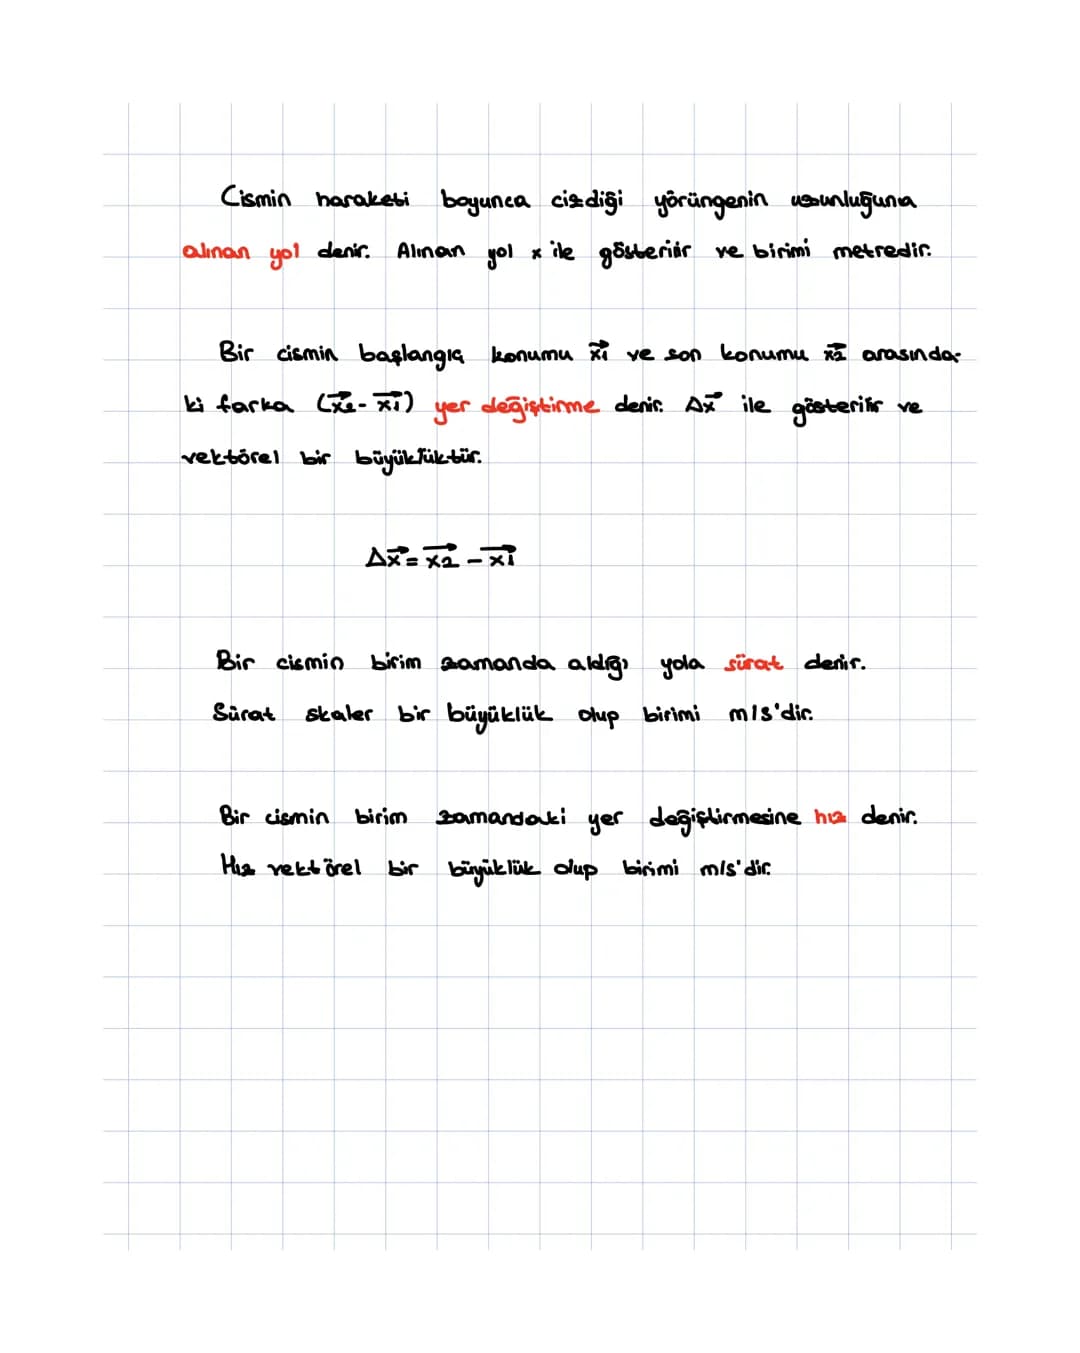 Cismin haraketi boyunca cizdiği yörüngenin uzunluğuna
alınan yol denir. Alınan yol x ile gösterilir ve birimi metredir.
Bir cismin başlangıç konumu x1 ve son konumu x2 arasında-
ki farka (x2-x1) yer değiştirme denir. Δx ile gösterilir ve
vektörel bir büyüklüktür.
Δx = x2 - x1
Bir cismin birim zamanda aldığı yola sürat denir.
Sürat skaler bir büyüklük olup birimi m/s'dir.
Bir cismin birim zamandaki yer değiştirmesine hız denir.
Hız vektörel bir büyüklük olup birimi m/s'dir.